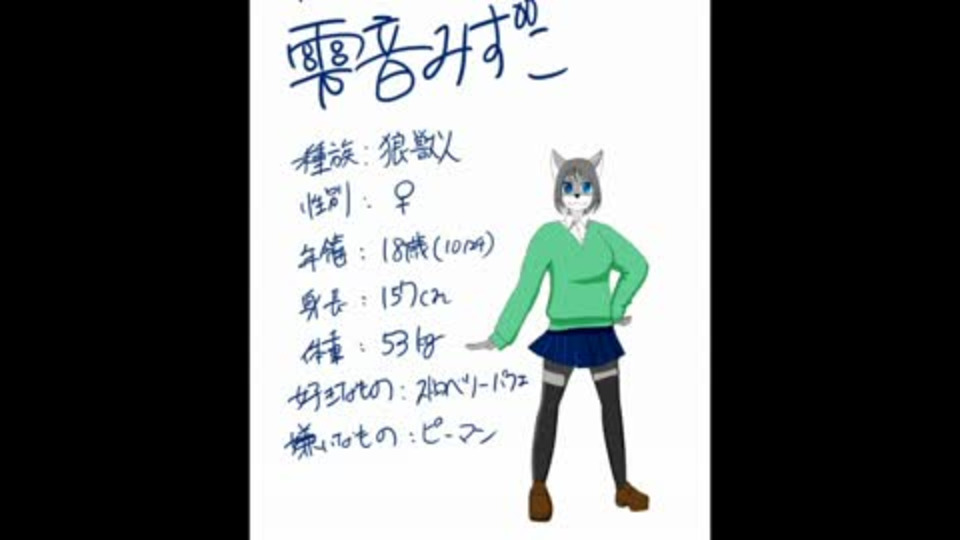 雫音みずこ
種族:狼獣人
性別:♀
年齢:18歳(10/29)
身長:157cm
体重:53kg
好きなもの:ストロベリーパフェ
嫌いなもの:ピーマン